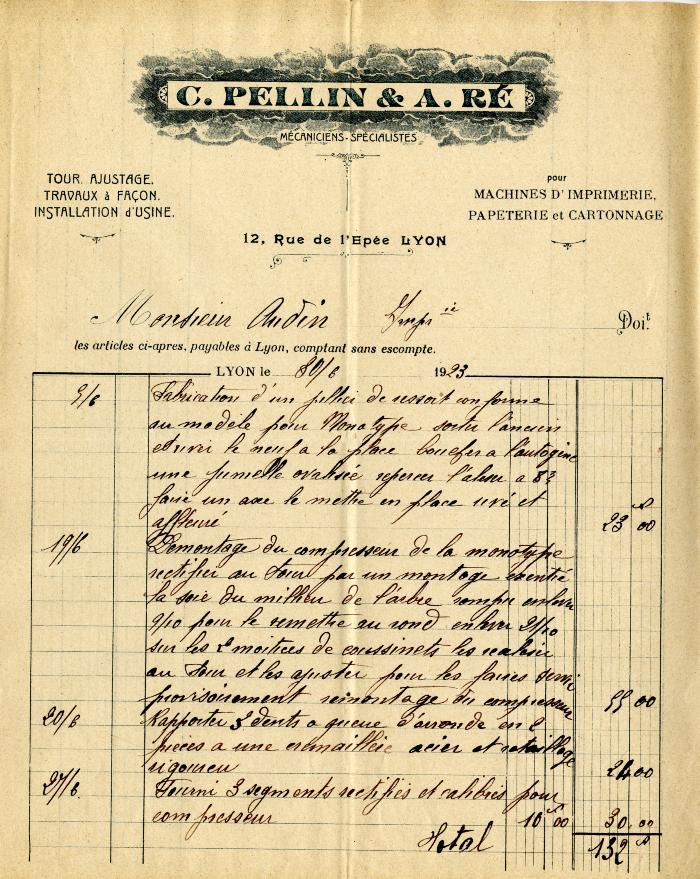 C. PELLIN & A. RÉ
MÉCANICIENS-SPÉCIALISTES
TOUR, AJUSTAGE,
TRAVAUX à FAÇON.
INSTALLATION d'USINE.
pour
MACHINES D'IMPRIMERIE,
PAPETERIE et CARTONNAGE
12, Rue de l'Epée LYON
Monsieur Audin Impr ie Doit
les articles ci-apres, payables à Lyon, comptant sans escompte.
LYON le 30/6 1923
9/6 Fabrication d'un de ressort conforme
au modèle pour Monotype sortir l'ancien
et river le neuf a la place boucher a l'autogène
une jumelle ovalisée repercer l'alésu a 8
faire un axe le mettre en place rivé et
affleuré 23 00
19/6 Demontage du compresseur de la monotype
rectifier au tour par un montage
la soie du milieu de l'arbre rompu enlever
9/10 pour le remettre au rond enlever 21/10
sur les 2 moitiées de coussinets les
au tour et les ajuster pour les faires servir
provisoirement remontage du compresseur 55 00
20/6 Rapporter 3 dents a queue d'arronde en 2
pièces a une cremaillère acier et retaillage
rigoureu 24 00
27/6 Fourni 3 segments rectifiés et calibrés pour
compresseur 10 00 30.00
Total 132